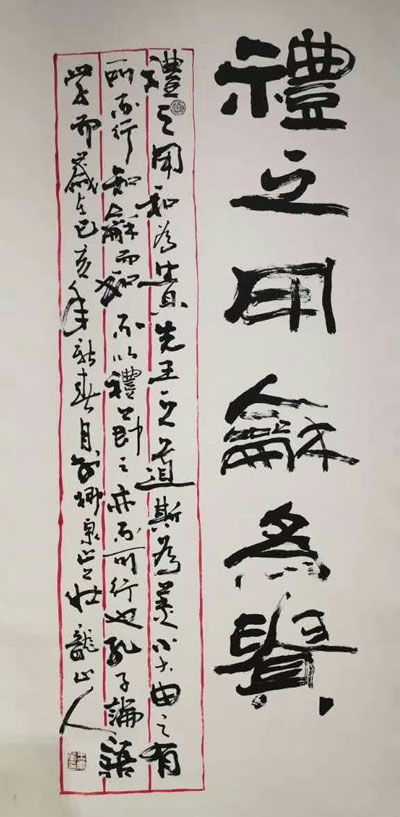 禮之用龢為貴
禮之用和為貴先王之道斯為美小大由之有
所不行知龢而和不以禮節之亦不可行也孔子論語
學而歲在己亥年新春月於柳泉
龍山人